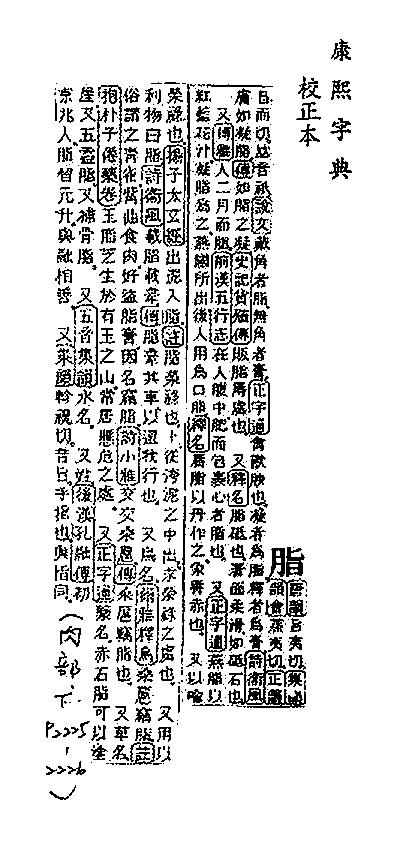 康熙字典
校正本
脂
唐韻旨夷切集韻
韻會蒸夷切正韻
旨而切𠀤音祗說文戴角者脂無角者膏正字通禽獸腴也凝者爲脂釋者爲膏詩衞風
膚如凝脂傳如脂之凝史記貨殖傳販脂辱處也 又釋名脂砥也著面柔滑如砥石也
又博雅人二月而脂前漢五行志在人腹中肥而包裹心者脂也 又正字通燕脂以
紅藍花汁凝脂爲之燕國所出後人用爲口脂釋名脣脂以丹作之象脣赤也 又以喩
榮祿也揚子太玄經出泥入脂註脂榮祿也下從洿泥之中出求榮祿之處也 又用以
利物曰脂詩衞風載脂載舝傳脂舝其車以還我行也 又鳥名爾雅釋鳥桑鳸竊脂註
俗謂之靑雀觜曲食肉好盜脂膏因名竊脂詩小雅交交桑扈傳桑扈竊脂也 又草名
抱朴子僊藥卷玉脂芝生於有玉之山常居懸危之處 又正字通藥名赤石脂可以塗
壁又五靈脂又補骨脂 又五音集韻水名 又姓後漢孔融傳初
京兆人脂習元升與融相善 又集韻軫視切音旨手指也與指同
(肉部下 P2225-2226)